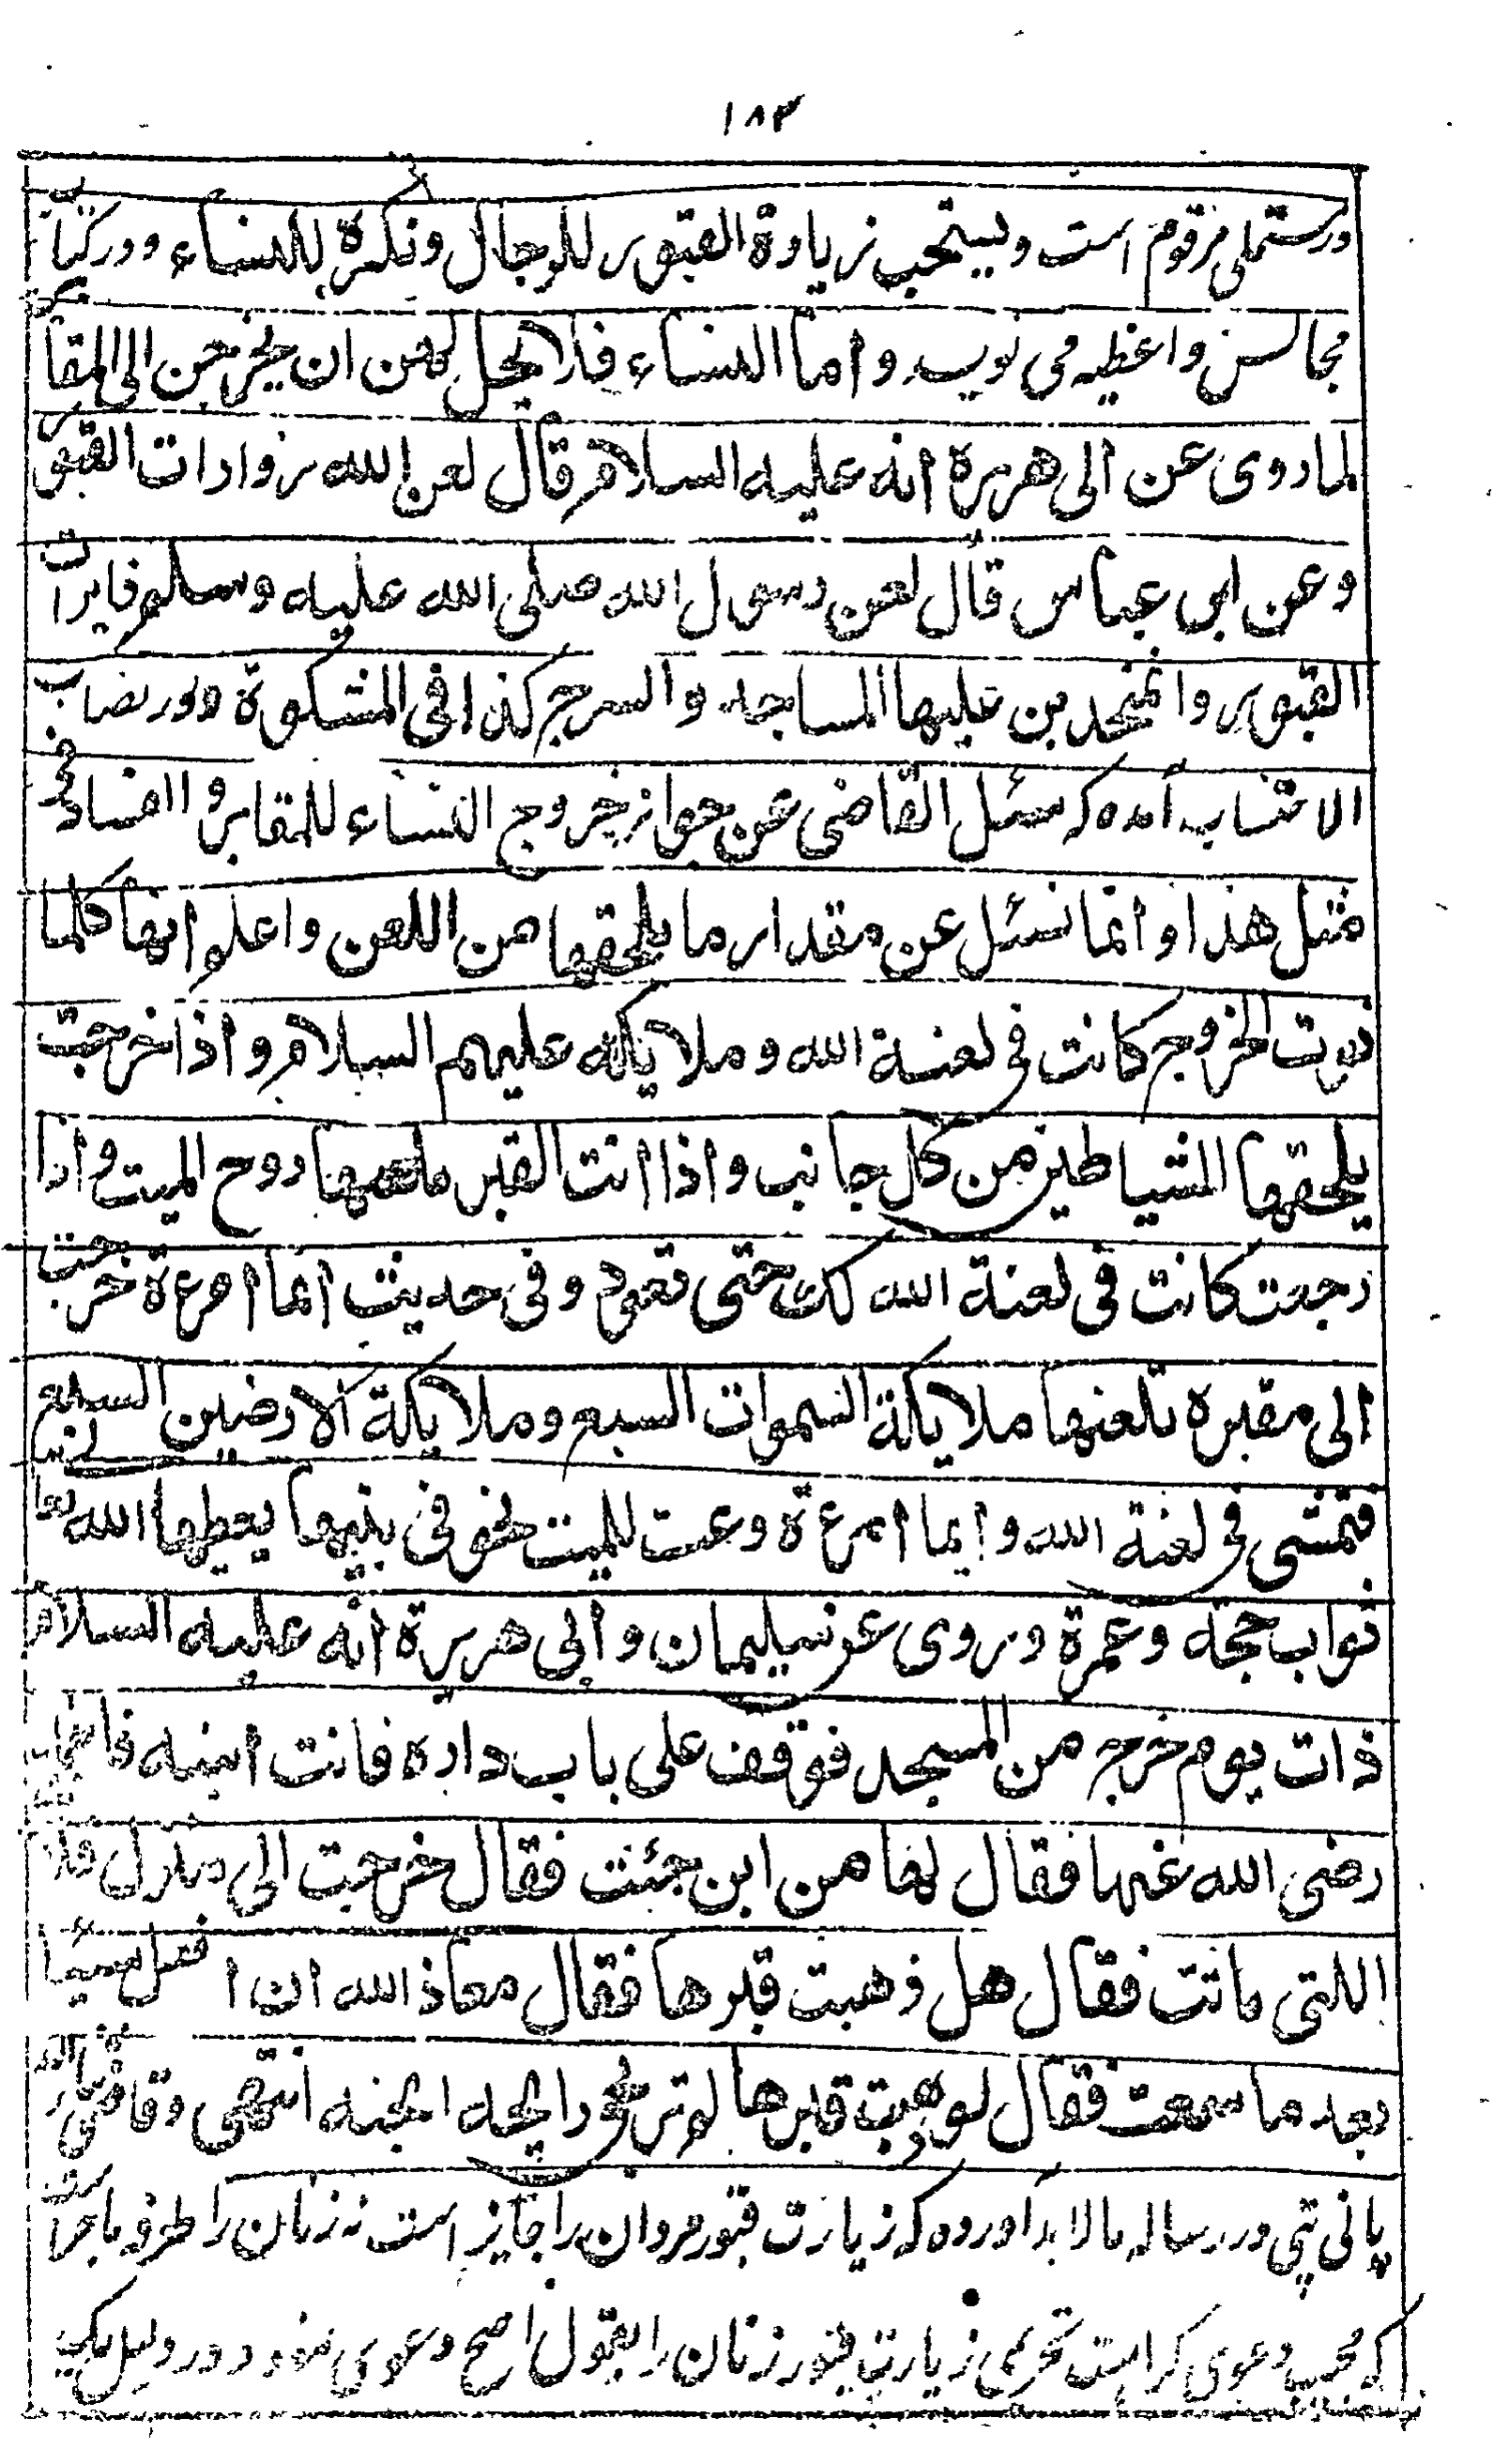 ۱۸۳
ور مستملی مرقوم است ویستحب زیارة القبور للرجال وتکره للنساء ودر کتاب
مجالس واعظیه می نویسد واما النساء فلا یحل لهن ان یخرجن الی المقابر
لما روی عن ابی هریرة انه علیه السلام قال لعن الله زوارات القبور
وعن ابن عباس قال لعن رسول الله صلی الله علیه وسلم زایرات
القبور والمتخذین علیها المساجد والسرج کذا فی المشکوة ودر نصاب
الاحتساب آمده که سئل القاضی عن جواز خروج النساء للمقابر والفساد فی
مثل هذا وانما نسئل عن مقدار ما یلحقها من اللعن واعلم انها کلما
نوت الخروج کانت فی لعنة الله وملایکه علیهم السلام واذا خرجت
یلحقها الشیاطین من کل جانب واذا اتت القبر یلعنها روح المیت واذا
رجعت کانت فی لعنة الله کک حتی تعود وفی حدیث ایما امرءة خرجت
الی مقبرة تلعنها ملایکة السموات السبع وملایکة الارضین السبع
فتمشی فی لعنة الله وایما امرءة دعت للمیت بخیر فی بیتها یعطیها الله تعا
ثواب حجة وعمرة وروی عن سلیمان وابی هریرة انه علیه السلام
ذات یوم خرج من المسجد فوقف علی باب داره فاتت ابنته فاطمة
رضی الله عنها فقال لها من این جئت فقال خرجت الی منزل فلانة
اللتی ماتت فقال هل ذهبت قبرها فقال معاذ الله ان افعل شیئا
بعد ما سمعت فقال لو ذهبت قبرها لم تریحی رایحه الجنه انتهی وقاضی ثناء الله
پانی پتی در رساله مالابد آورده که زیارت قبور مردان را جایز است نه زنان را طرفه ماجرا است
که مجیب دعوی کراهت تحریمی زیارت قبور زنان را بقول اصح دعوی نمود و در دلیل یک